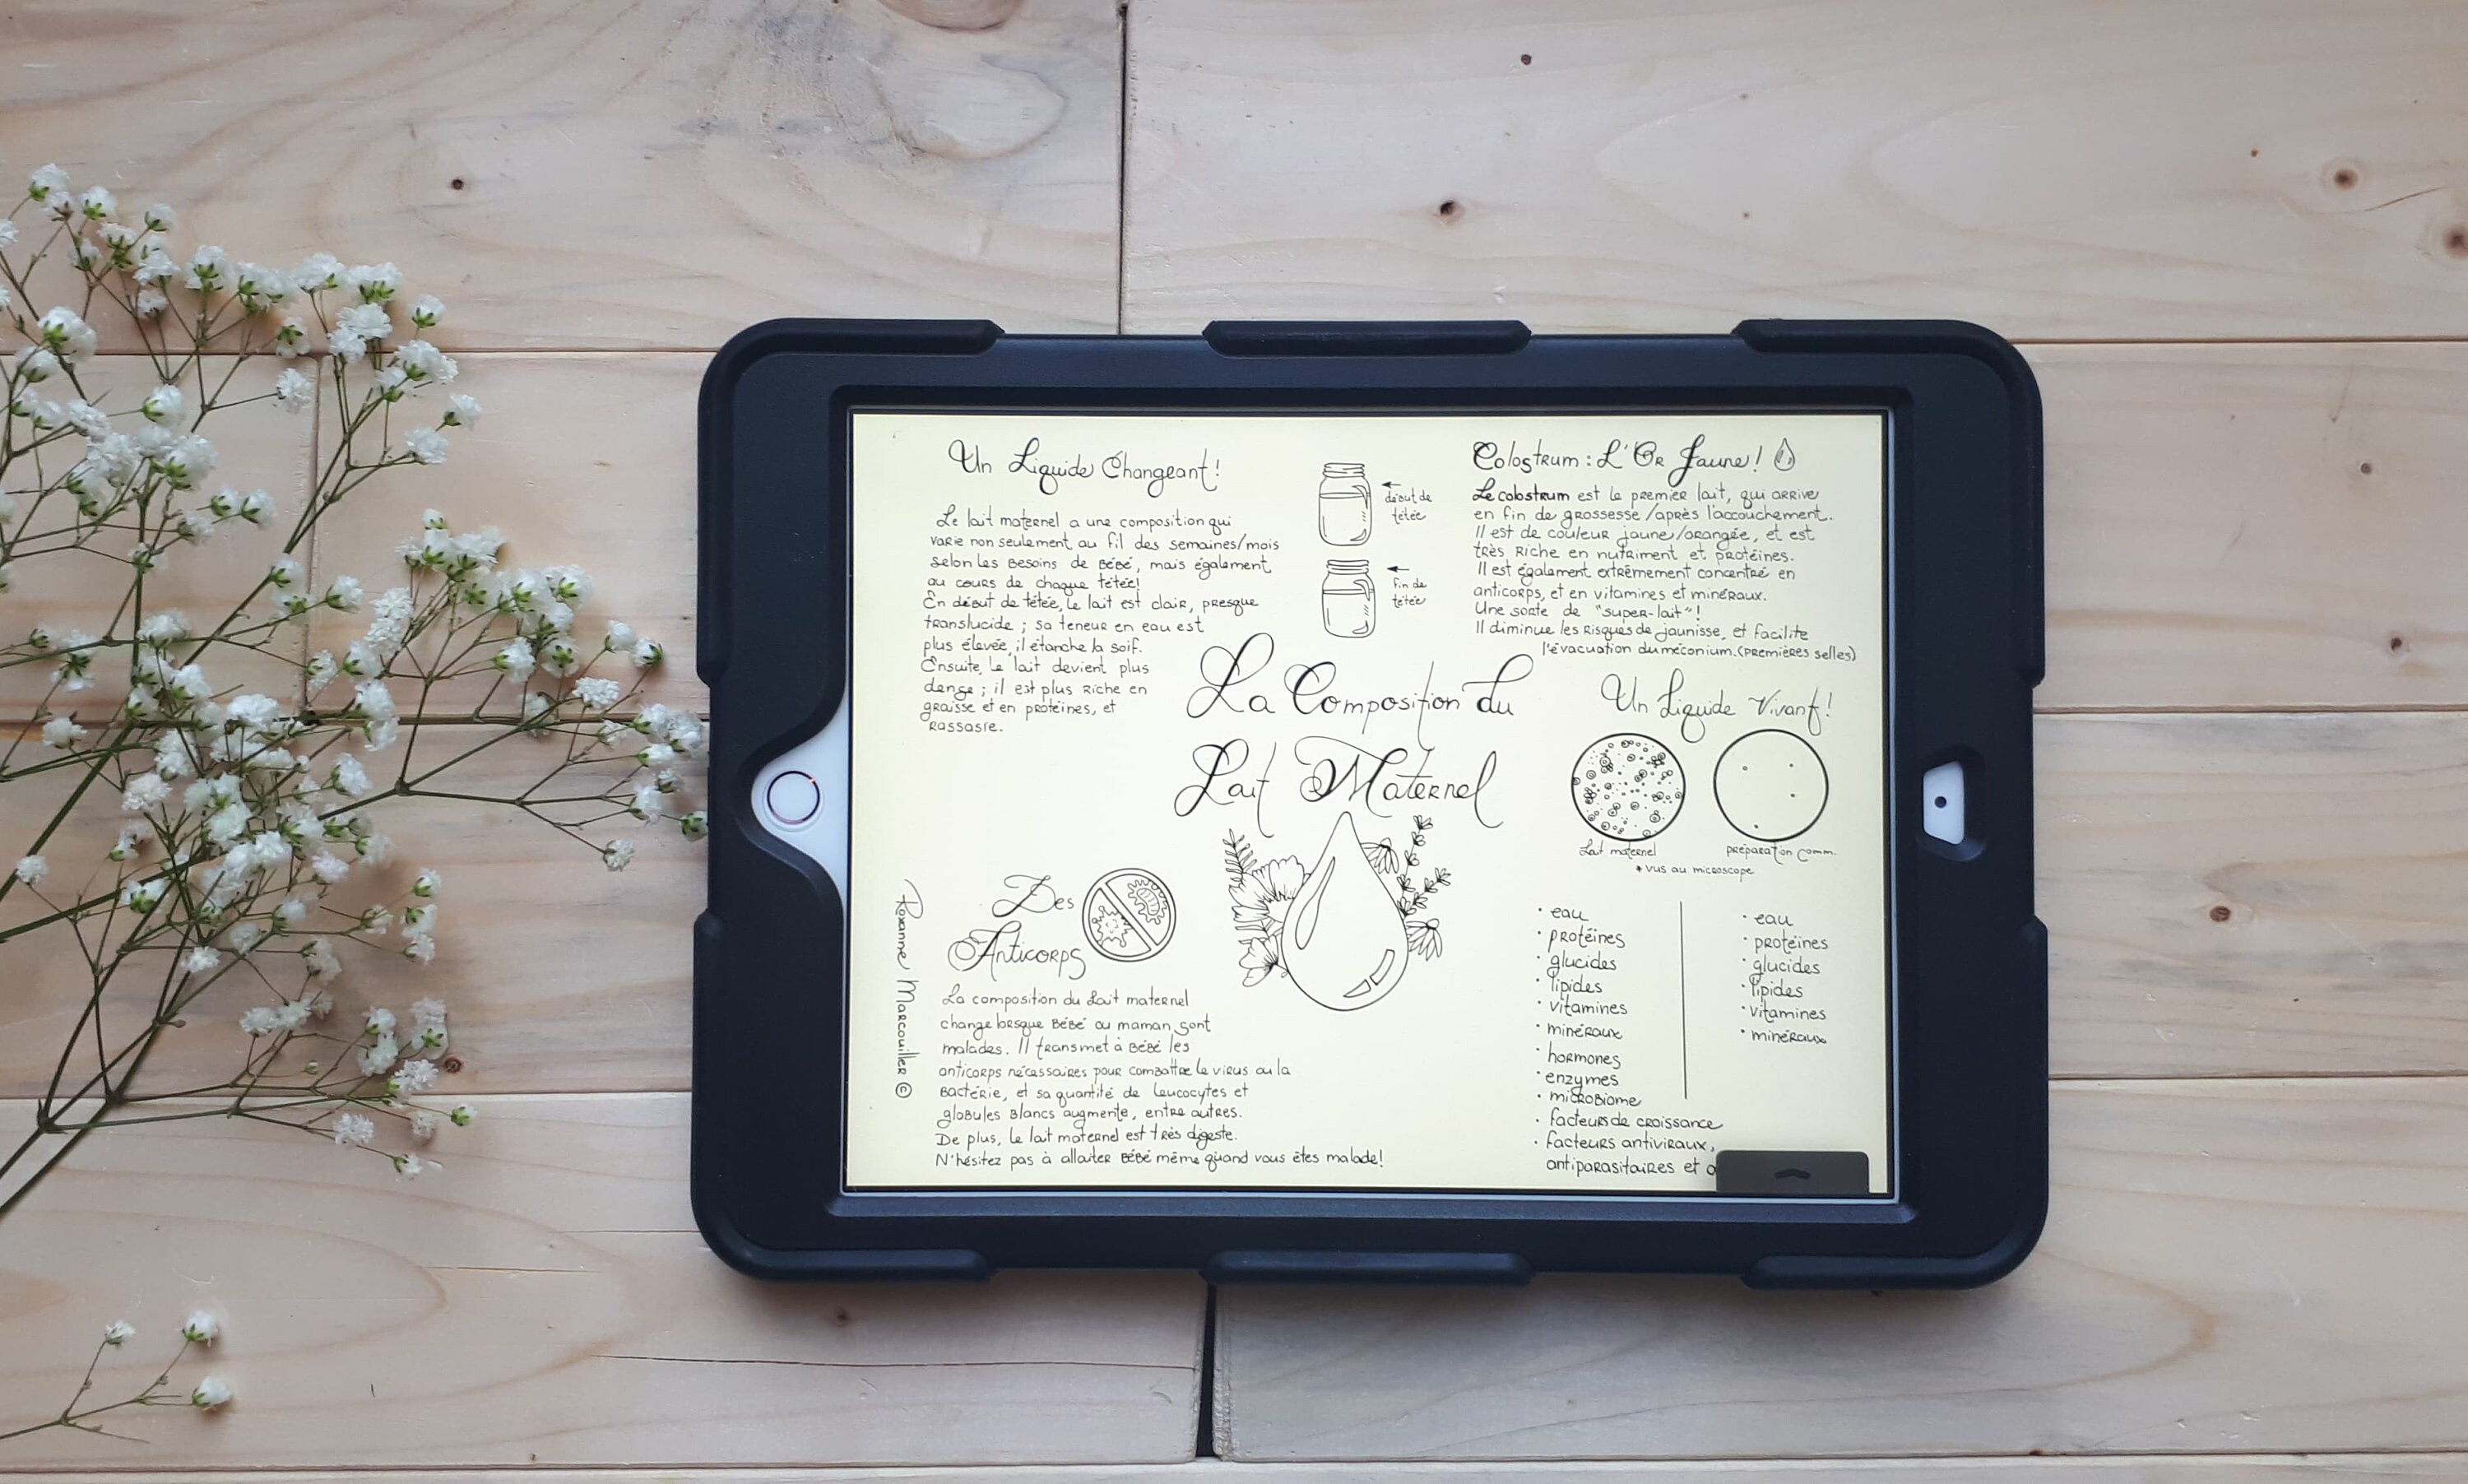 Un Liquide Changeant!
Le lait maternel a une composition qui
varie non seulement au fil des semaines/mois
selon les besoins de bébé, mais également
au cours de chaque tétée!
En début de tétée, le lait est clair, presque
translucide ; sa teneur en eau est
plus élevée, il étanche la soif.
Ensuite, le lait devient plus
dense ; il est plus riche en
graisse et en protéines, et
rassasie.
début de
tétée
fin de
tétée
Colostrum : L'Or Jaune!
Le colostrum est le premier lait, qui arrive
en fin de grossesse/après l'accouchement.
Il est de couleur jaune/orangée, et est
très riche en nutriment et protéines.
Il est également extrêmement concentré en
anticorps, et en vitamines et minéraux.
Une sorte de "super-lait"!
Il diminue les risques de jaunisse, et facilite
l'évacuation du méconium. (premières selles)
La Composition du
Lait Maternel
Un Liquide Vivant!
Lait maternel
préparation comm.
* vus au microscope
• eau
• protéines
• glucides
• lipides
• vitamines
• minéraux
• hormones
• enzymes
• microbiome
• facteurs de croissance
• facteurs antiviraux,
antiparasitaires et
• eau
• protéines
• glucides
• lipides
• vitamines
• minéraux
Des
Anticorps
La composition du lait maternel
change lorsque bébé ou maman sont
malades. Il transmet à bébé les
anticorps nécessaires pour combattre le virus ou la
bactérie, et sa quantité de leucocytes et
globules blancs augmente, entre autres.
De plus, le lait maternel est très digeste.
N'hésitez pas à allaiter bébé même quand vous êtes malade!
Roxanne Marcouiller ©